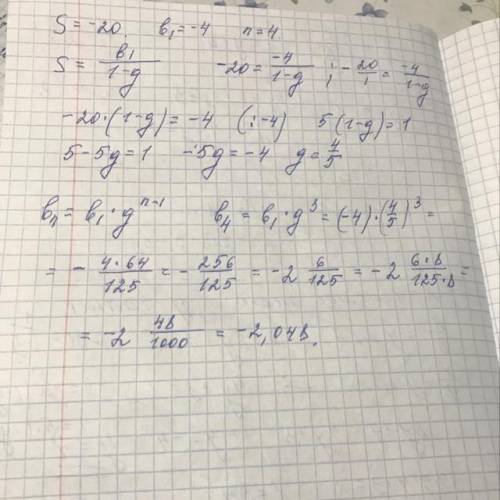 S = -20. b₁ = -4 n = 4
S = b₁/(1-g) -20 = -4/(1-g) ; -20/1 = -4/(1-g)
-20·(1-g) = -4 (: -4) 5(1-g) = 1
5 - 5g = 1 -5g = -4 g = 4/5
bₙ = b₁·gⁿ⁻¹ b₄ = b₁·g³ = (-4)·(4/5)³ =
= - 4·64/125 = - 256/125 = -2 6/125 = -2 6·8/125·8 =
= -2 48/1000 = -2,048.